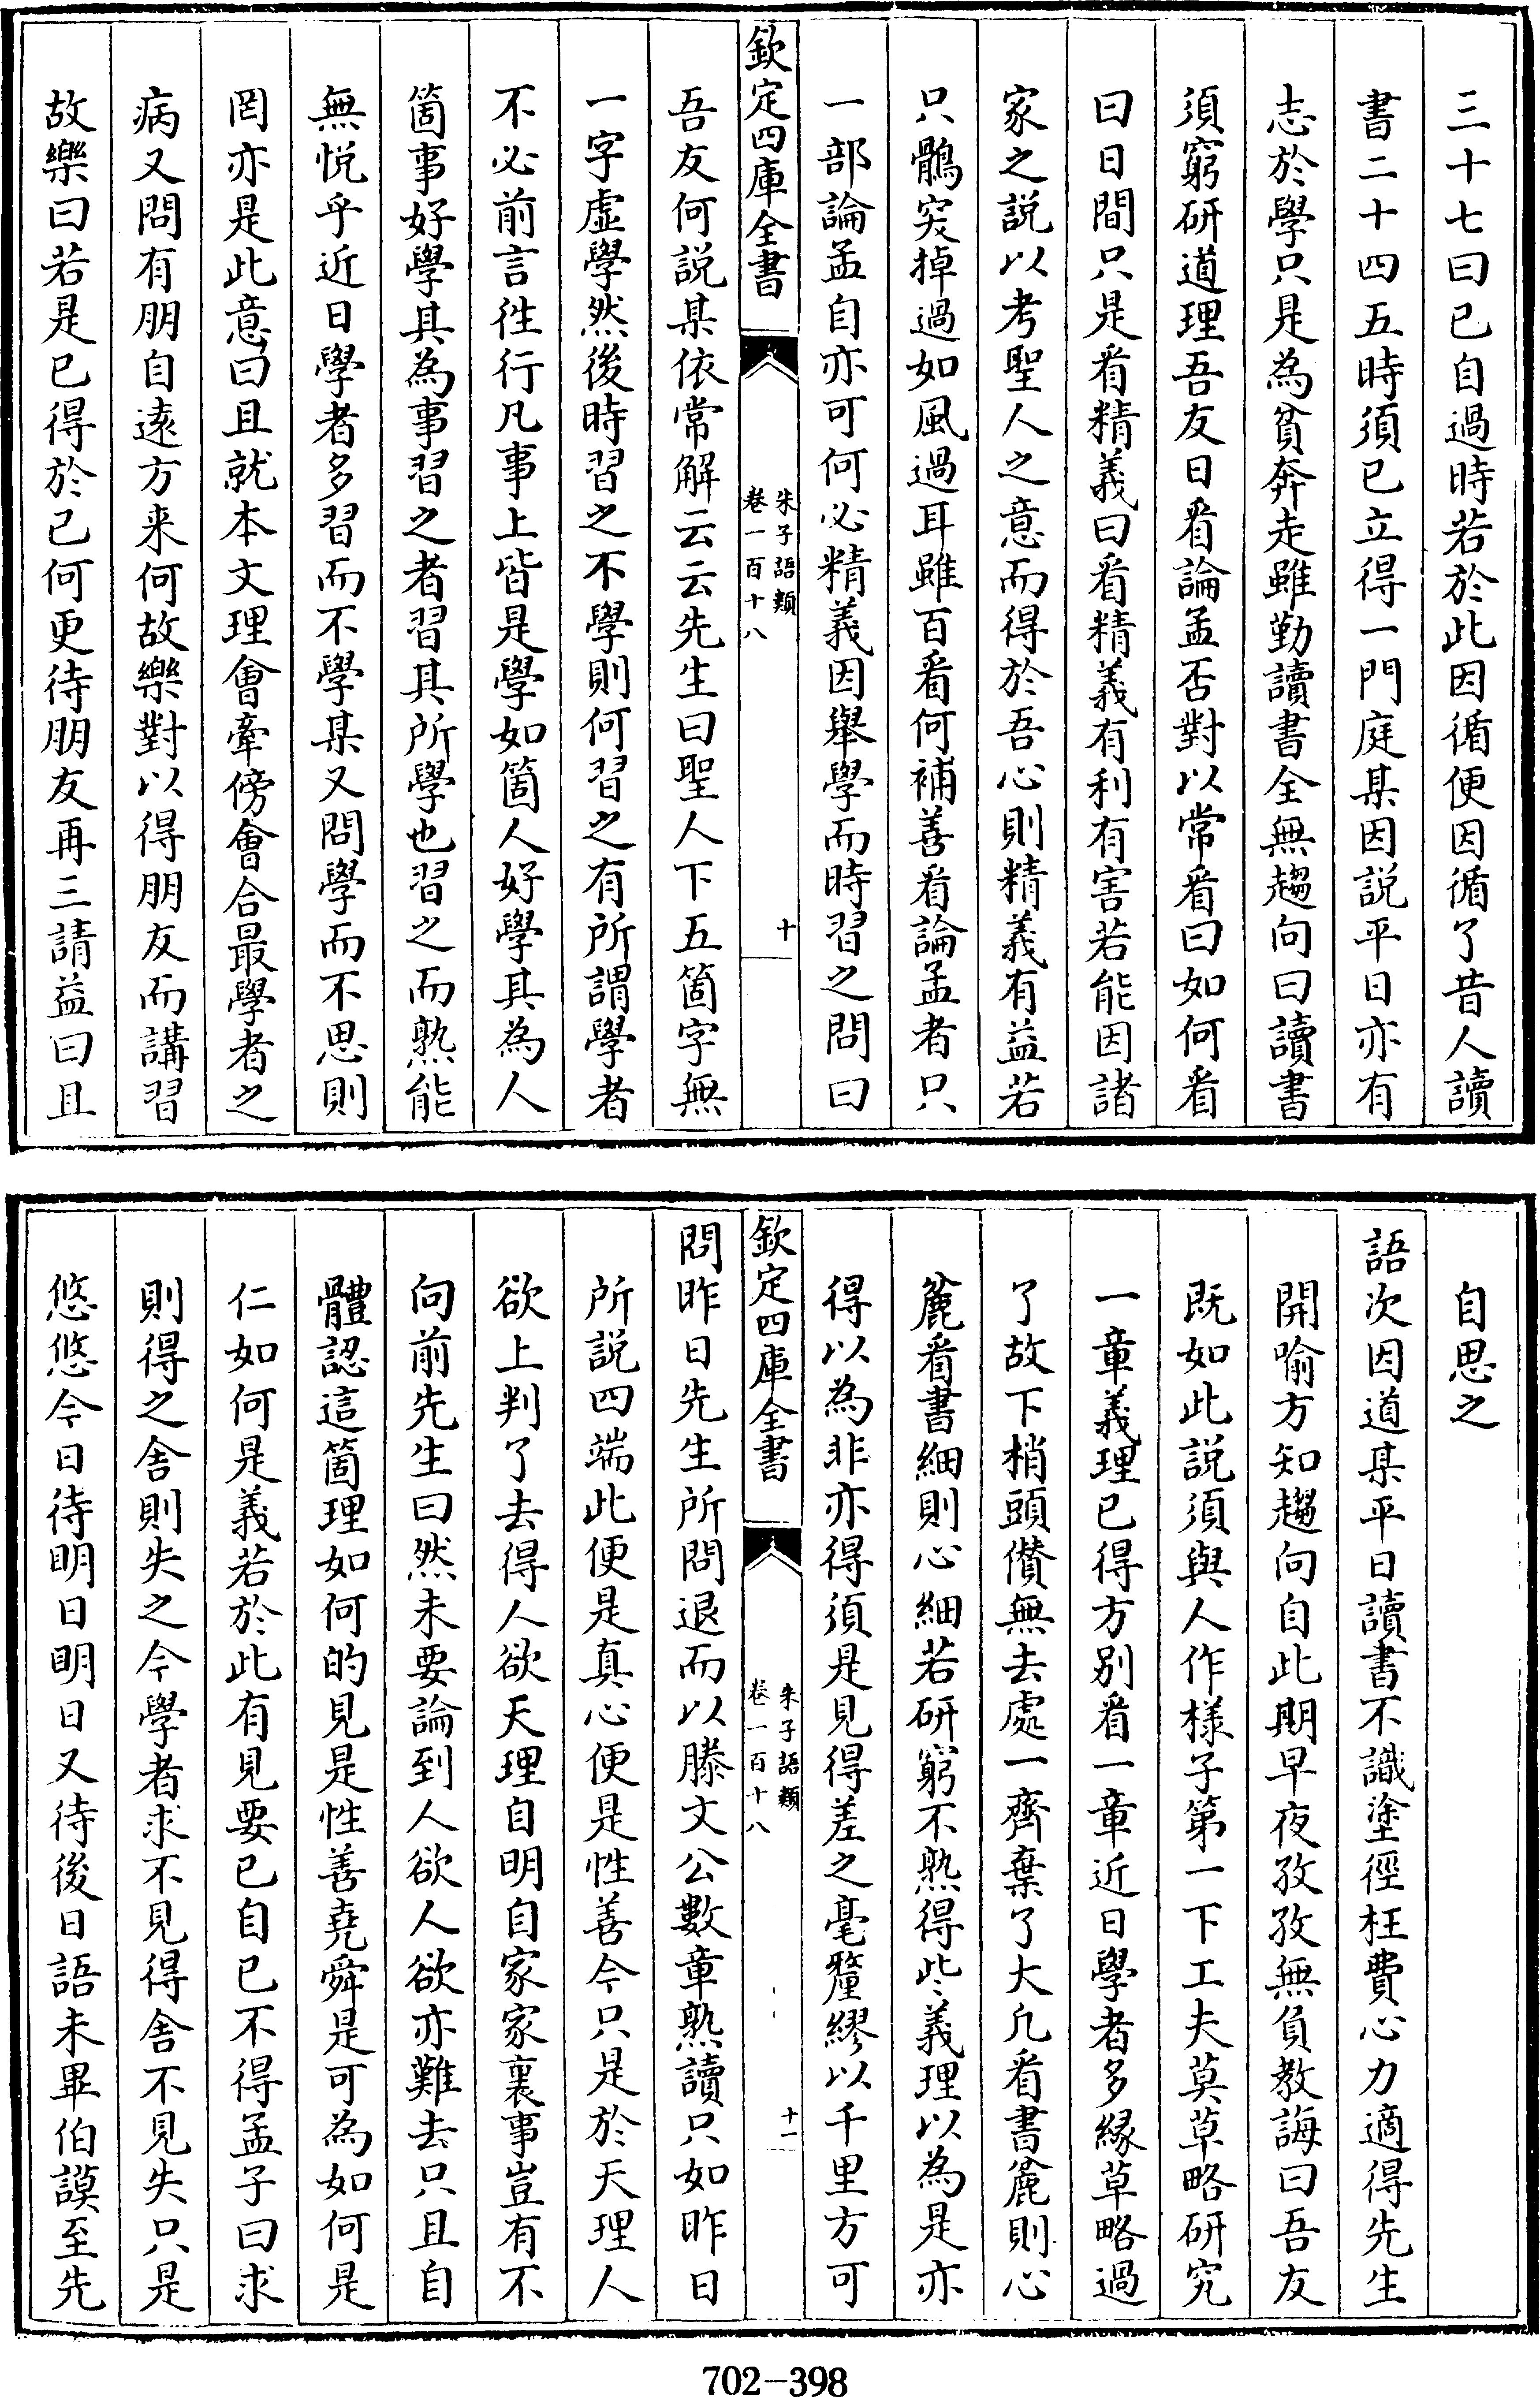 三十七曰已自過時若於此因循便因循了昔人讀
書二十四五時須已立得一門庭某因説平日亦有
志於學只是為貧奔走雖勤讀書全無趨向曰讀書
須窮研道理吾友日㸔論孟否對以常㸔曰如何㸔
曰日間只是㸔精義曰㸔精義有利有害若能因諸
家之説以考聖人之意而得於吾心則精義有益若
只鶻突掉過如風過耳雖百㸔何補善㸔論孟者只
一部論孟自亦可何必精義因舉學而時習之問曰
欽定四庫全書
朱子語類
卷一百十八
十
吾友何説某依常解云云先生曰聖人下五箇字無
一字虛學然後時習之不學則何習之有所謂學者
不必前言徃行凡事上皆是學如箇人好學其為人
箇事好學其為事習之者習其所學也習之而熟能
無悦乎近日學者多習而不學某又問學而不思則
罔亦是此意曰且就本文理會牽傍會合最學者之
病又問有朋自逺方来何故樂對以得朋友而講習
故樂曰若是已得於己何更待朋友再三請益曰且
自思之
語次因道某平日讀書不識塗徑枉費心力適得先生
開喻方知趨向自此期早夜孜孜無負教誨曰吾友
既如此説須與人作様子第一下工夫莫草略研究
一章義理已得方别㸔一章近日學者多緣草略過
了故下梢頭儹無去處一齊棄了大凡㸔書麄則心
麄㸔書細則心細若研窮不熟得此義理以為是亦
得以為非亦得須是見得差之毫釐繆以千里方可
欽定四庫全書
朱子語類
卷一百十八
十一
問昨日先生所問退而以滕文公數章熟讀只如昨日
所説四端此便是真心便是性善今只是於天理人
欲上判了去得人欲天理自明自家家裏事豈有不
向前先生曰然未要論到人欲人欲亦難去只且自
體認這箇理如何的見是性善堯舜是可為如何是
仁如何是義若於此有見要已自已不得孟子曰求
則得之舍則失之今學者求不見得舍不見失只是
悠悠今日待明日明日又待後日語未畢伯謨至先
702-398